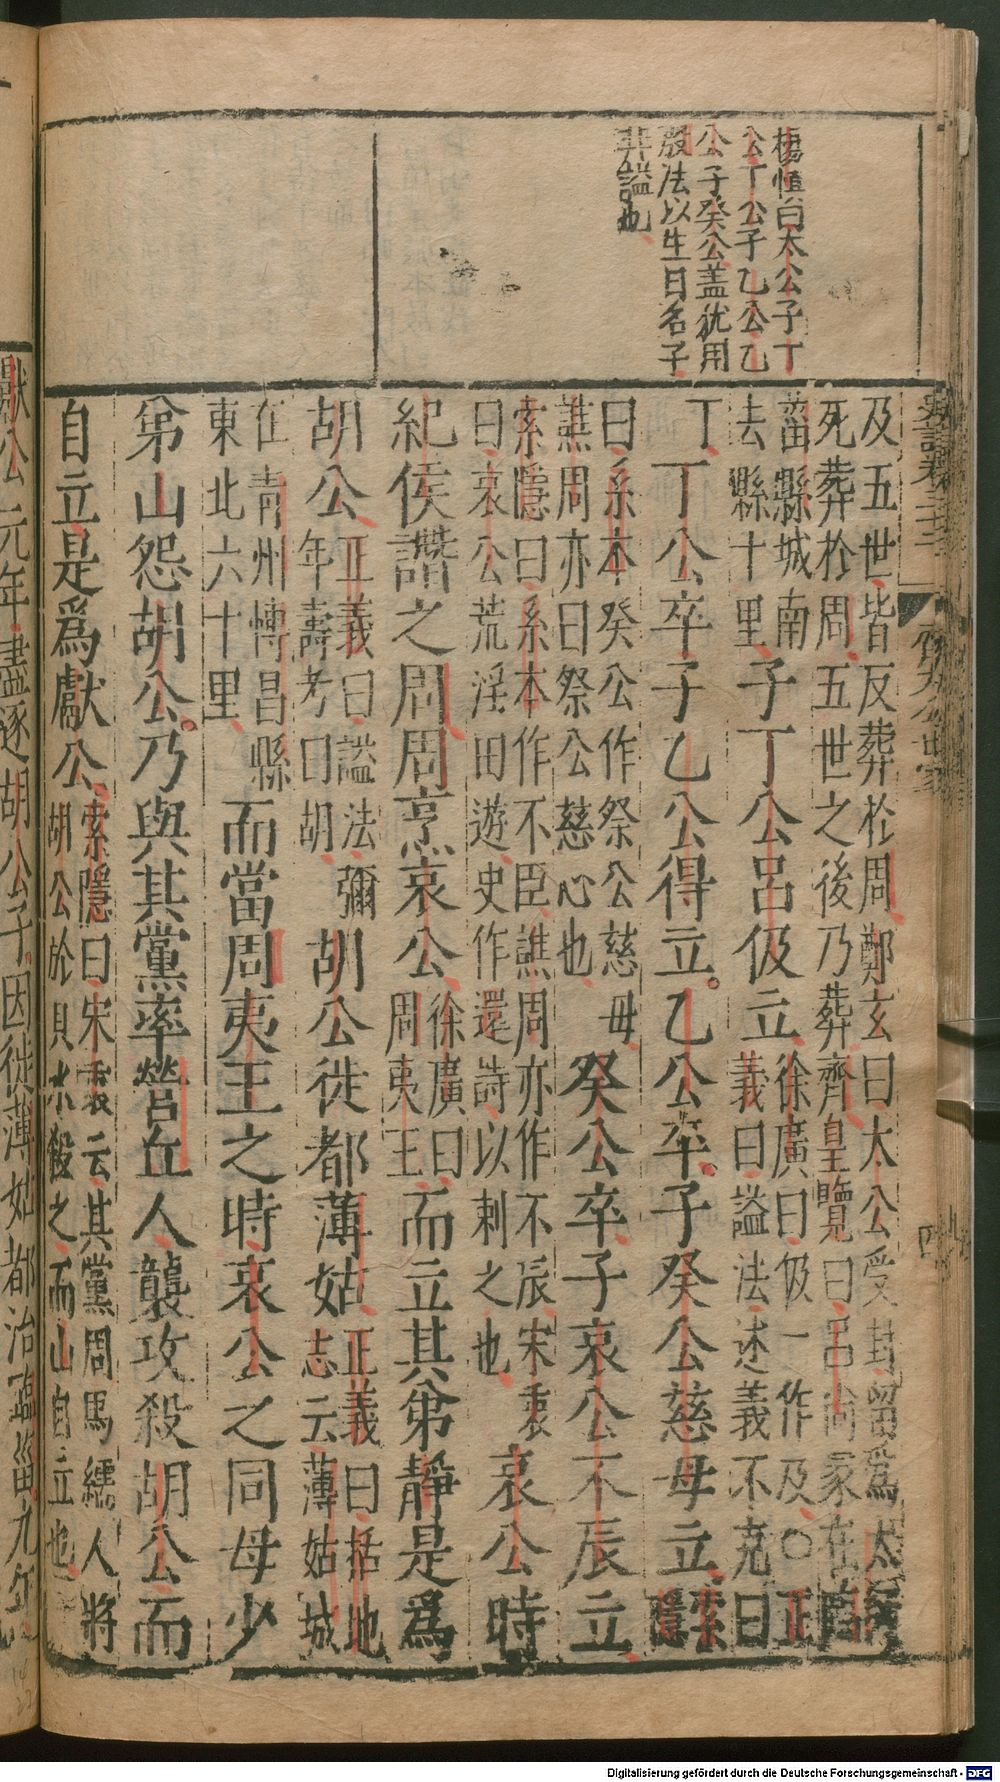 楊愼曰太公子丁
公丁公子乙公乙
公子癸公盖犹用
殷法以生日名子
非謚也
齊太公世家
四
及五世皆反葬於周鄭玄曰太公受封留爲太
死葬於周五世之後乃葬齊皇覽曰呂尚冢在臨
菑縣城南
去縣十里
子丁公呂伋立
徐廣曰伋一作及○正
義曰謚法述義不克曰
丁
丁公卒子乙公得立乙公卒子癸公慈母立
索
隱
曰系本癸公作祭公慈母
譙周亦曰祭公慈心也
癸公卒子哀公不辰立
索隱曰系本作不臣譙周亦作不辰宋衷
曰哀公荒淫田遊史作還詩以刺之也
哀公時
紀侯譖之周周烹哀公
徐廣曰
周夷王
而立其弟靜是爲
胡公
正義曰謚法彌
年壽考曰胡
胡公徙都薄姑
正義曰括地
志云薄姑城
在青州博昌縣
東北六十里
而當周夷王之時哀公之同母少
弟山怨胡公乃與其黨率營丘人襲攻殺胡公而
自立是爲獻公
索隱曰宋衷云其黨周馬繻人將
胡公於貝水殺之而山自立也
獻公元年盡逐胡公子因徙薄姑都治臨菑九年
Digitalisierung gefördert durch die Deutsche Forschungsgemeinschaft - DFG